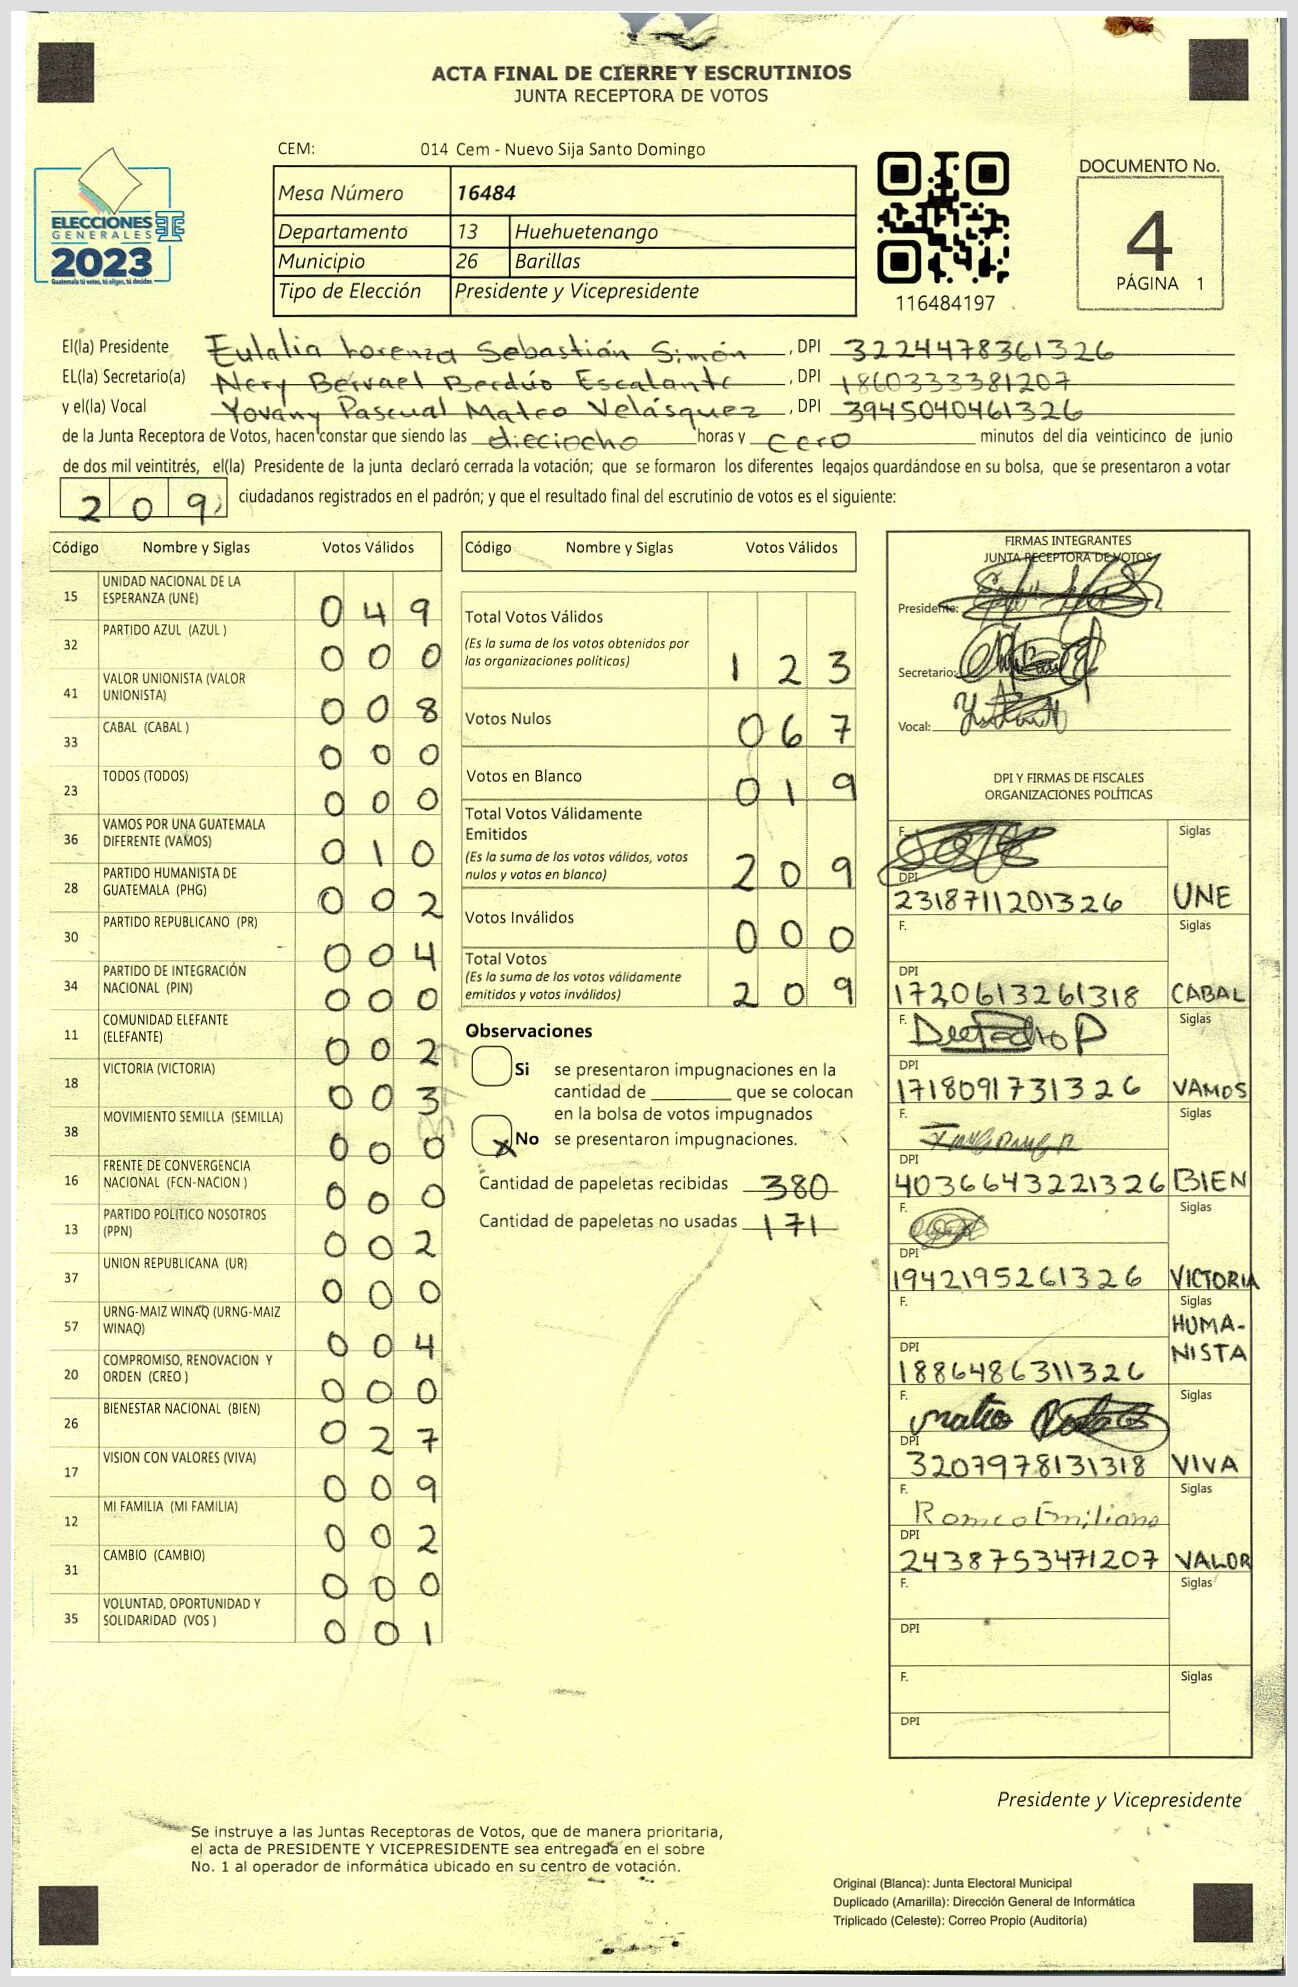 ACTA FINAL DE CIERRE Y ESCRUTINIOS
JUNTA RECEPTORA DE VOTOS
CEM: 014 Cem - Nuevo Sija Santo Domingo
Mesa Número 16484
Departamento 13 Huehuetenango
Municipio 26 Barillas
Tipo de Elección Presidente y Vicepresidente
ELECCIONES
GENERALES
2023
Guatemala tú votas, tú eliges, tú decides
116484197
DOCUMENTO No.
4
PÁGINA 1
El(la) Presidente Eulalia Lorenza Sebastián Simón, DPI 3224478361326
EL(la) Secretario(a) Nery Bervael Berdúo Escalante, DPI 1860333381207
y el(la) Vocal Yovany Pascual Mateo Velásquez, DPI 3945040461326
de la Junta Receptora de Votos, hacen constar que siendo las dieciocho horas y cero minutos del día veinticinco de junio
de dos mil veintitrés, el(la) Presidente de la junta declaró cerrada la votación; que se formaron los diferentes legajos guardándose en su bolsa, que se presentaron a votar
209 ciudadanos registrados en el padrón; y que el resultado final del escrutinio de votos es el siguiente:
Código Nombre y Siglas Votos Válidos
15 UNIDAD NACIONAL DE LA ESPERANZA (UNE) 049
32 PARTIDO AZUL (AZUL ) 000
41 VALOR UNIONISTA (VALOR UNIONISTA) 008
33 CABAL (CABAL ) 000
23 TODOS (TODOS) 000
36 VAMOS POR UNA GUATEMALA DIFERENTE (VAMOS) 010
28 PARTIDO HUMANISTA DE GUATEMALA (PHG) 002
30 PARTIDO REPUBLICANO (PR) 004
34 PARTIDO DE INTEGRACIÓN NACIONAL (PIN) 000
11 COMUNIDAD ELEFANTE (ELEFANTE) 002
18 VICTORIA (VICTORIA) 003
38 MOVIMIENTO SEMILLA (SEMILLA) 000
16 FRENTE DE CONVERGENCIA NACIONAL (FCN-NACION ) 000
13 PARTIDO POLITICO NOSOTROS (PPN) 002
37 UNION REPUBLICANA (UR) 000
57 URNG-MAIZ WINAQ (URNG-MAIZ WINAQ) 004
20 COMPROMISO, RENOVACION Y ORDEN (CREO ) 000
26 BIENESTAR NACIONAL (BIEN) 027
17 VISION CON VALORES (VIVA) 009
12 MI FAMILIA (MI FAMILIA) 002
31 CAMBIO (CAMBIO) 000
35 VOLUNTAD, OPORTUNIDAD Y SOLIDARIDAD (VOS ) 001
Código Nombre y Siglas Votos Válidos
Total Votos Válidos
(Es la suma de los votos obtenidos por
las organizaciones políticas) 123
Votos Nulos 067
Votos en Blanco 019
Total Votos Válidamente
Emitidos
(Es la suma de los votos válidos, votos
nulos y votos en blanco) 209
Votos Inválidos 000
Total Votos
(Es la suma de los votos válidamente
emitidos y votos inválidos) 209
Observaciones
Si se presentaron impugnaciones en la
cantidad de ________ que se colocan
en la bolsa de votos impugnados
X No se presentaron impugnaciones.
Cantidad de papeletas recibidas 380
Cantidad de papeletas no usadas 171
FIRMAS INTEGRANTES
JUNTA RECEPTORA DE VOTOS
Presidente:
Secretario:
Vocal:
DPI Y FIRMAS DE FISCALES
ORGANIZACIONES POLÍTICAS
F. Siglas
DPI
2318711201326 UNE
F. Siglas
DPI
1720613261318 CABAL
F. Siglas
DPI
1718091731326 VAMOS
F. Siglas
DPI
4036643221326 BIEN
F. Siglas
DPI
1942195261326 VICTORIA
F. Siglas
HUMA-
NISTA
DPI
1886486311326
F. Mateo Siglas
DPI
3207978131318 VIVA
F. Romeo Emiliano Siglas
DPI
2438753471207 VALOR
F. Siglas
DPI
F. Siglas
DPI
Presidente y Vicepresidente
Se instruye a las Juntas Receptoras de Votos, que de manera prioritaria,
el acta de PRESIDENTE Y VICEPRESIDENTE sea entregada en el sobre
No. 1 al operador de informática ubicado en su centro de votación.
Original (Blanca): Junta Electoral Municipal
Duplicado (Amarilla): Dirección General de Informática
Triplicado (Celeste): Correo Propio (Auditoría)